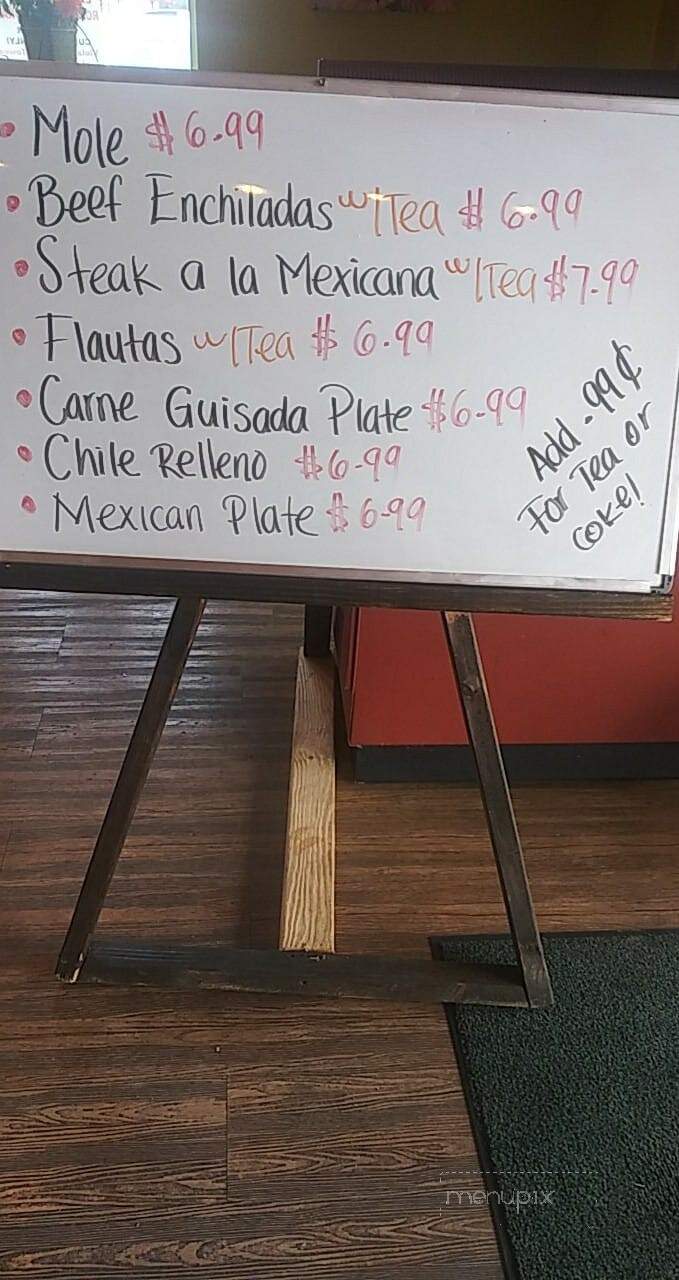 • Mole $6.99
• Beef Enchiladas w/Tea $6.99
• Steak a la Mexicana w/Tea $7.99
• Flautas w/Tea $6.99
• Carne Guisada Plate $6.99
• Chile Relleno $6.99
• Mexican Plate $6.99
Add .99¢
For Tea or
coke!
menupix